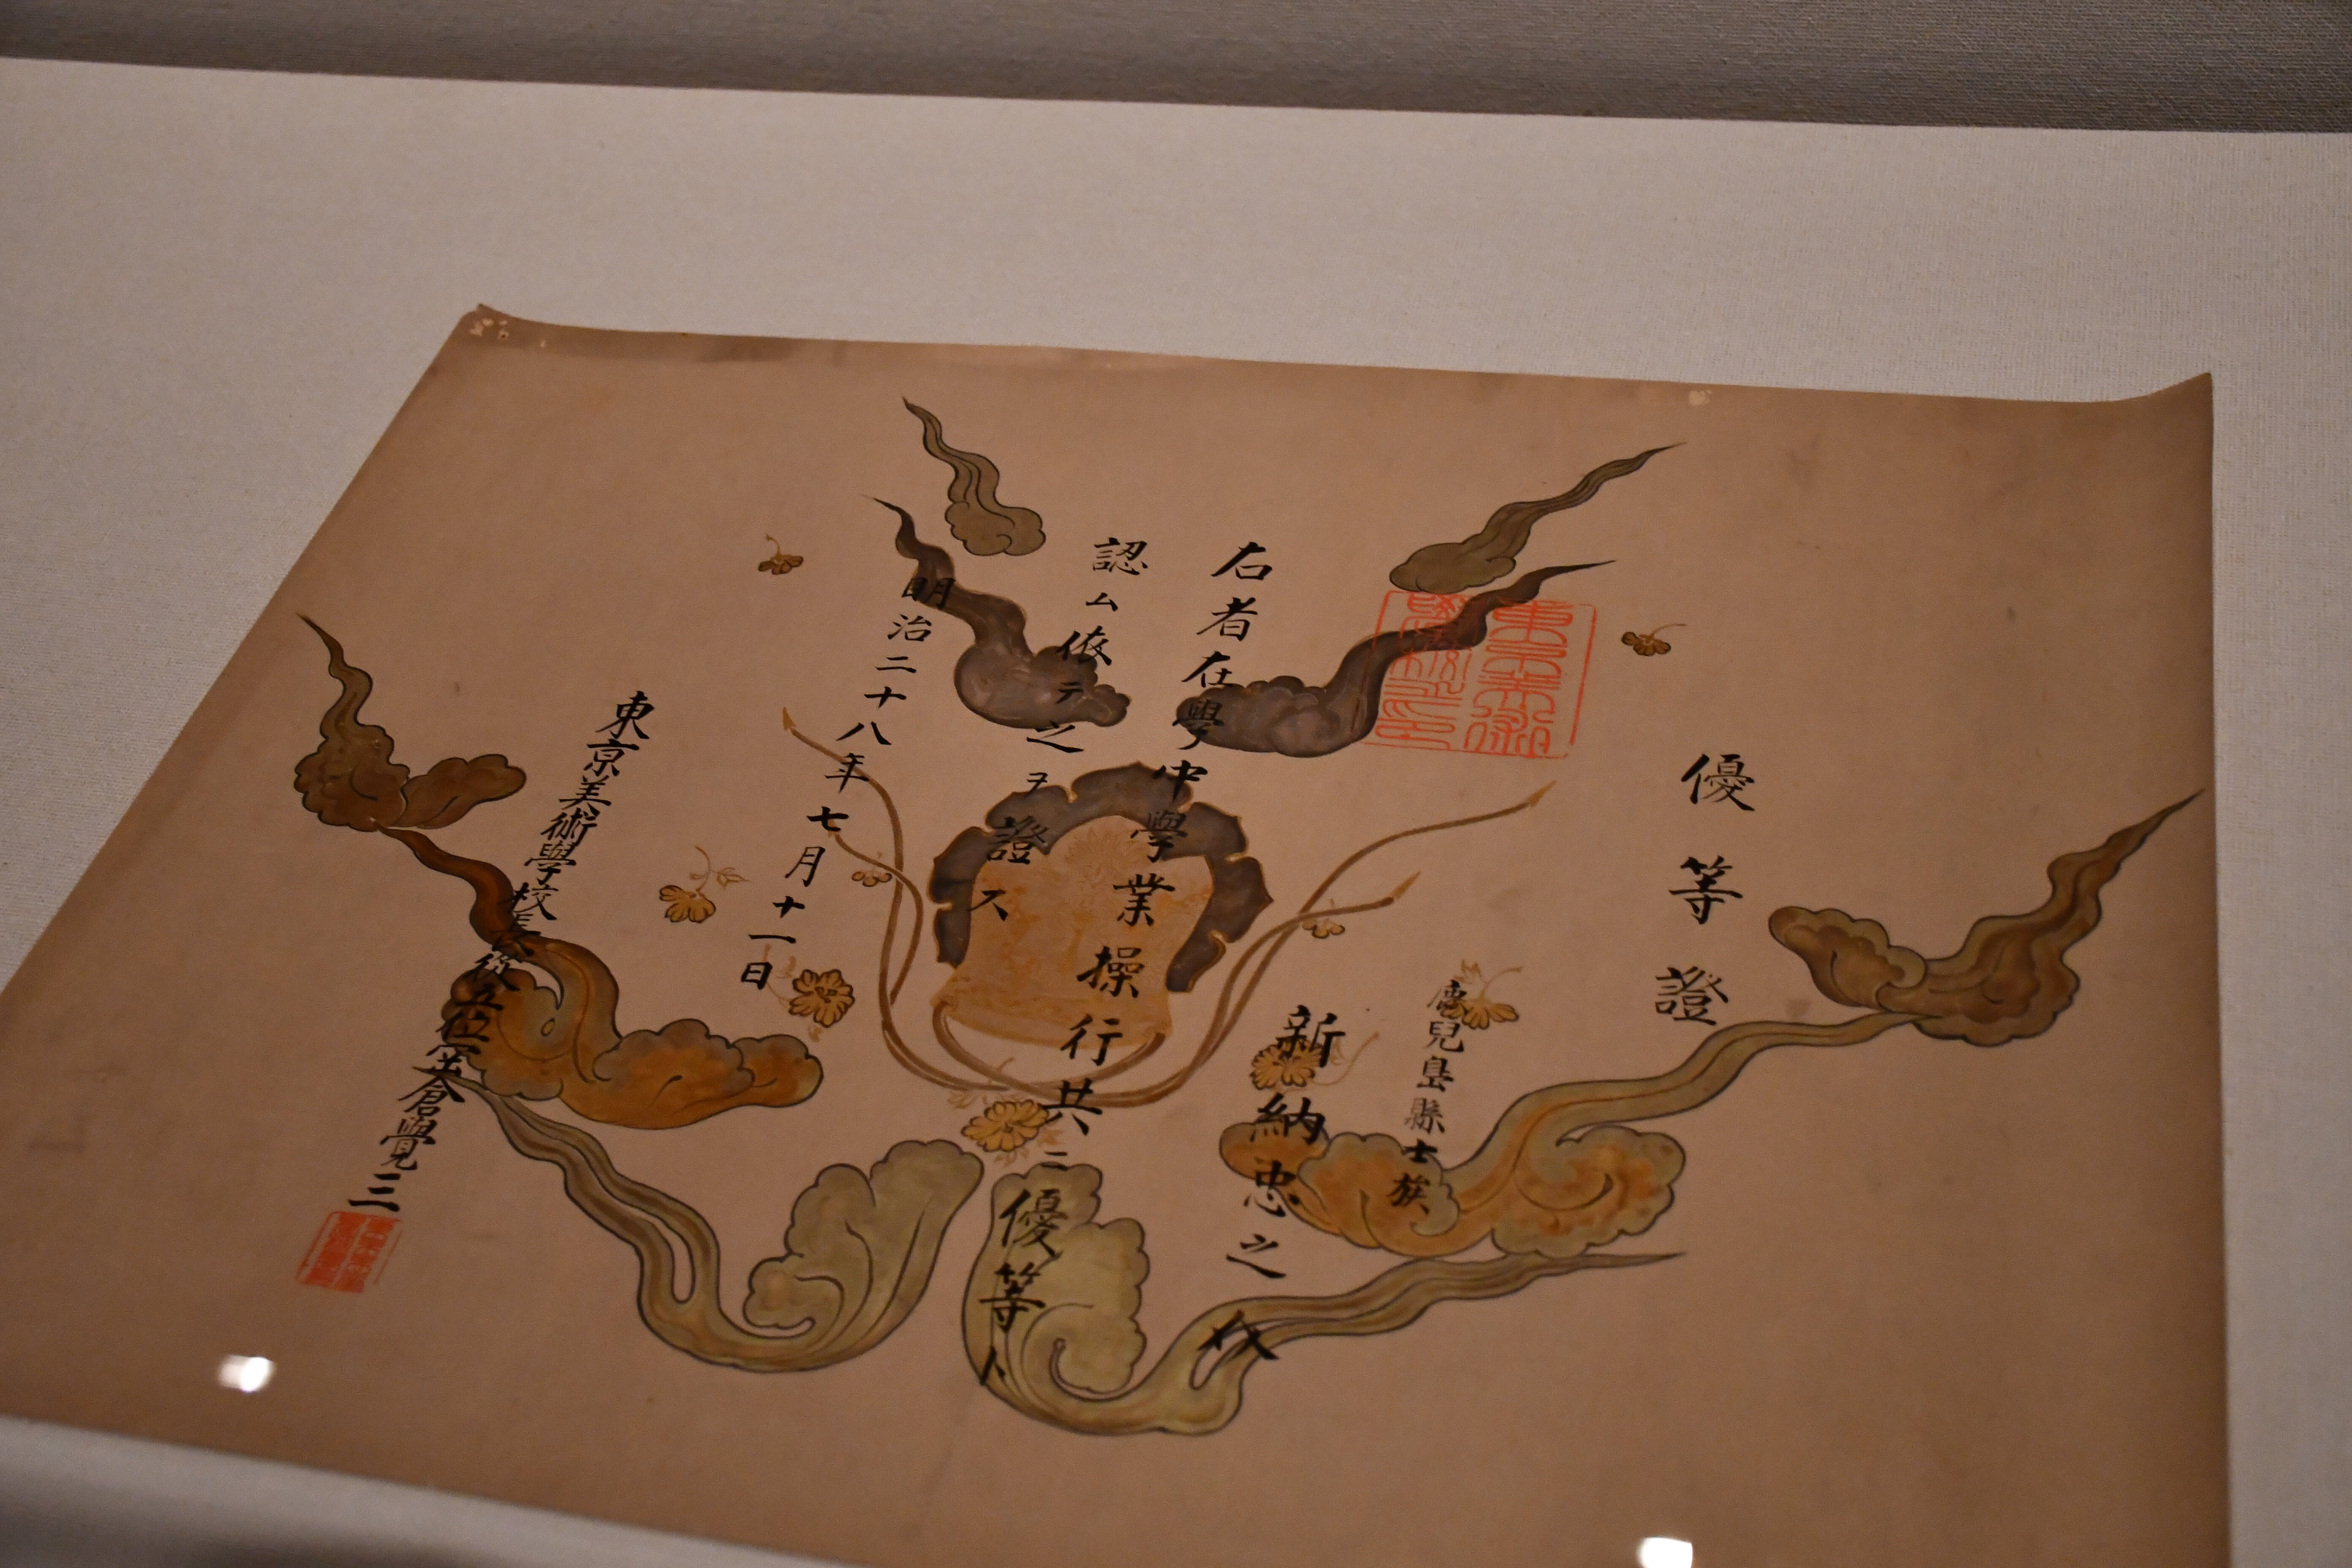 優等證
鹿兒島縣士族
新納忠之介
右者在學中學業操行共ニ優等ト
認ム依テ之ヲ證ス
明治二十八年七月十一日
東京美術學校長從五位岡倉覺三
東京美術學校之印